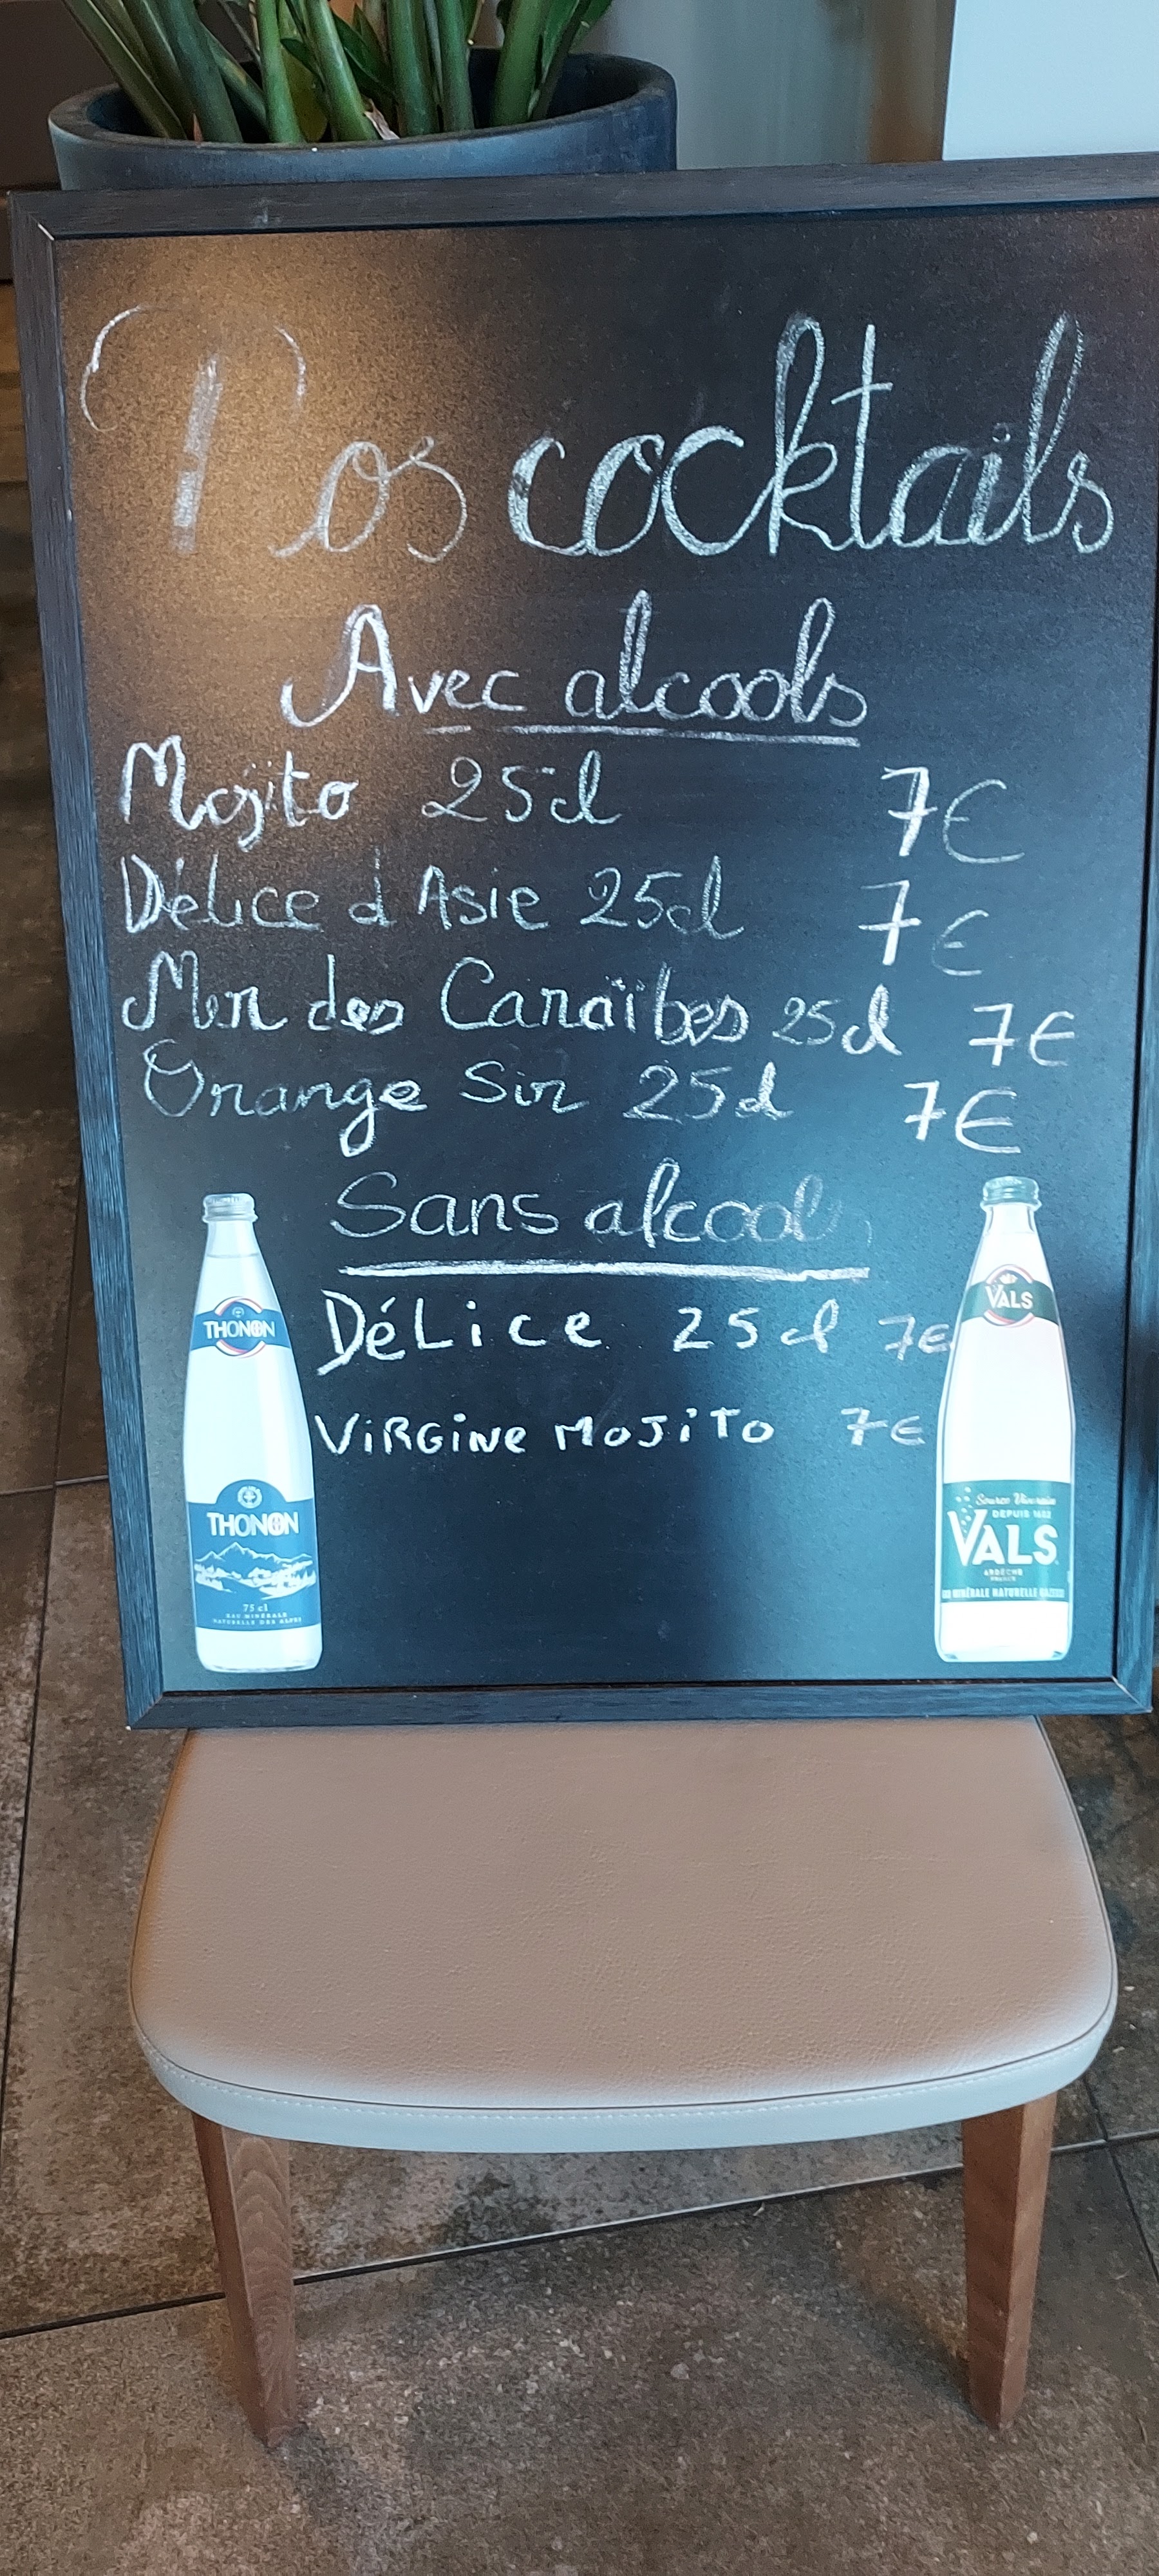 Nos cocktails
Avec alcools
Mojito 25cl 7€
Délice d'Asie 25cl 7€
Mer des Caraïbes 25cl 7€
Orange Sir 25cl 7€
Sans alcools
DéLice 25cl 7€
ViRGiNe MOJiTO 7€
THONON
THONON
75 cl
EAU MINÉRALE
NATURELLE DES ALPES
VALS
Source Vivaraise
DEPUIS 1602
VALS
ARDÈCHE
FRANCE
EAU MINÉRALE NATURELLE GAZEUSE